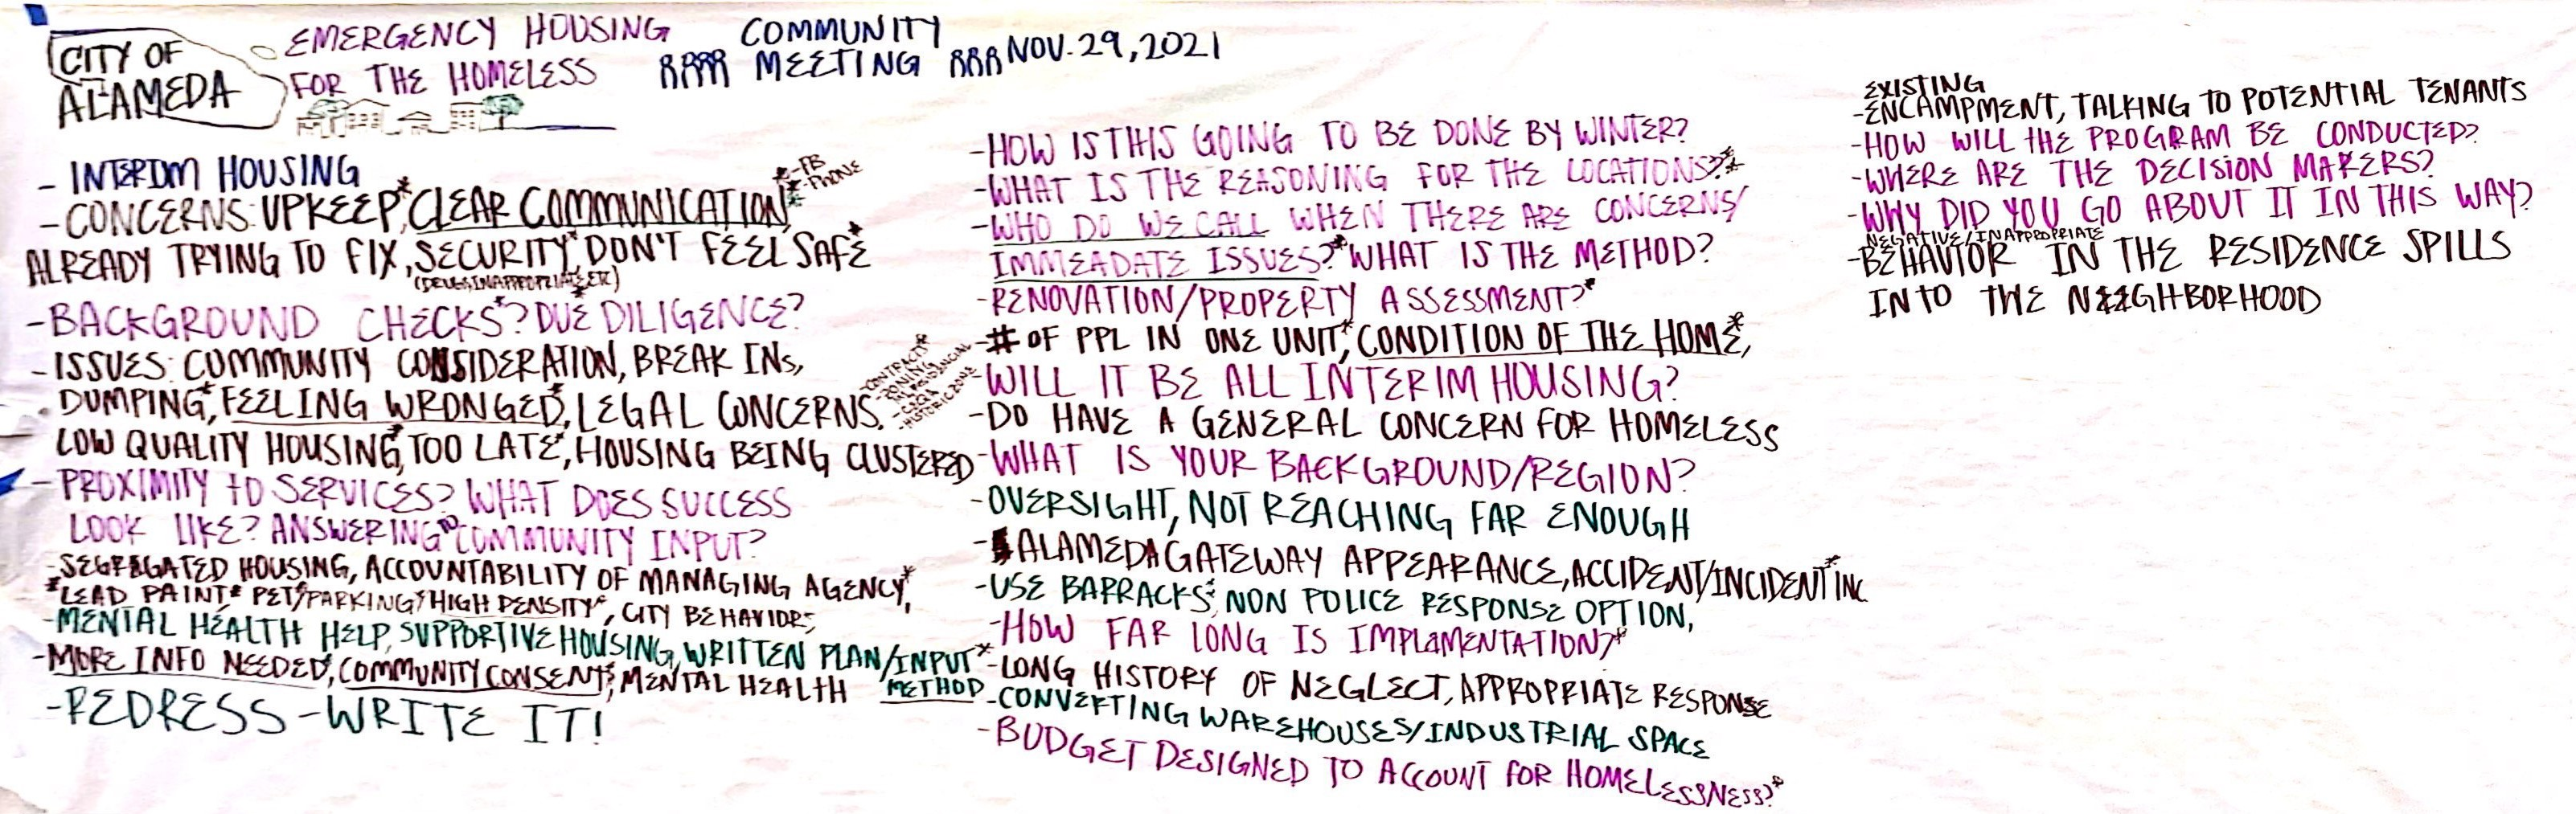 CITY OF
ALAMEDA
EMERGENCY HOUSING
FOR THE HOMELESS
COMMUNITY
MEETING
NOV. 29, 2021
- INTERIM HOUSING
- CONCERNS: UPKEEP,* CLEAR COMMUNICATION,*
*-FB
*-PHONE
ALREADY TRYING TO FIX, SECURITY* DON'T FEEL SAFE*
- BACKGROUND CHECKS*? DUE DILIGENCE?
- ISSUES: COMMUNITY CONSIDERATION, BREAK INs,
DUMPING,* FEELING WRONGED,* LEGAL CONCERNS.
- CONTRACTS*
- ZONING
- HISTORIC ZONE
LOW QUALITY HOUSING,* TOO LATE,* HOUSING BEING CLUSTERED
- PROXIMITY TO SERVICES? WHAT DOES SUCCESS
LOOK LIKE? ANSWERING TO COMMUNITY INPUT?
- SEGREGATED HOUSING, ACCOUNTABILITY OF MANAGING AGENCY,*
*LEAD PAINT* PET*/PARKING*/HIGH DENSITY*, CITY BEHAVIOR;
- MENTAL HEALTH HELP, SUPPORTIVE HOUSING, WRITTEN PLAN/INPUT*
METHOD
- MORE INFO NEEDED,* COMMUNITY CONSENT,* MENTAL HEALTH
- REDRESS - WRITE IT!
- HOW IS THIS GOING TO BE DONE BY WINTER?
- WHAT IS THE REASONING FOR THE LOCATIONS?*
- WHO DO WE CALL WHEN THERE ARE CONCERNS/
IMMEADATE ISSUES?* WHAT IS THE METHOD?
- RENOVATION/PROPERTY ASSESSMENT?*
- # OF PPL IN ONE UNIT,* CONDITION OF THE HOME,*
- WILL IT BE ALL INTERIM HOUSING?
- DO HAVE A GENERAL CONCERN FOR HOMELESS
- WHAT IS YOUR BACKGROUND/REGION?
- OVERSIGHT, NOT REACHING FAR ENOUGH
- ALAMEDA GATEWAY APPEARANCE, ACCIDENT/INCIDENT* INC
- USE BARRACKS*, NON POLICE RESPONSE OPTION,
- HOW FAR LONG IS IMPLAMENTATION?*
- LONG HISTORY OF NEGLECT, APPROPRIATE RESPONSE
- CONVERTING WAREHOUSES/INDUSTRIAL SPACE
- BUDGET DESIGNED TO ACCOUNT FOR HOMELESSNESS?*
EXISTING
- ENCAMPMENT, TALKING TO POTENTIAL TENANTS
- HOW WILL THE PROGRAM BE CONDUCTED?
- WHERE ARE THE DECISION MAKERS?
- WHY DID YOU GO ABOUT IT IN THIS WAY?
NEGATIVE/INAPPROPRIATE
- BEHAVIOR IN THE RESIDENCE SPILLS
INTO THE NEIGHBORHOOD